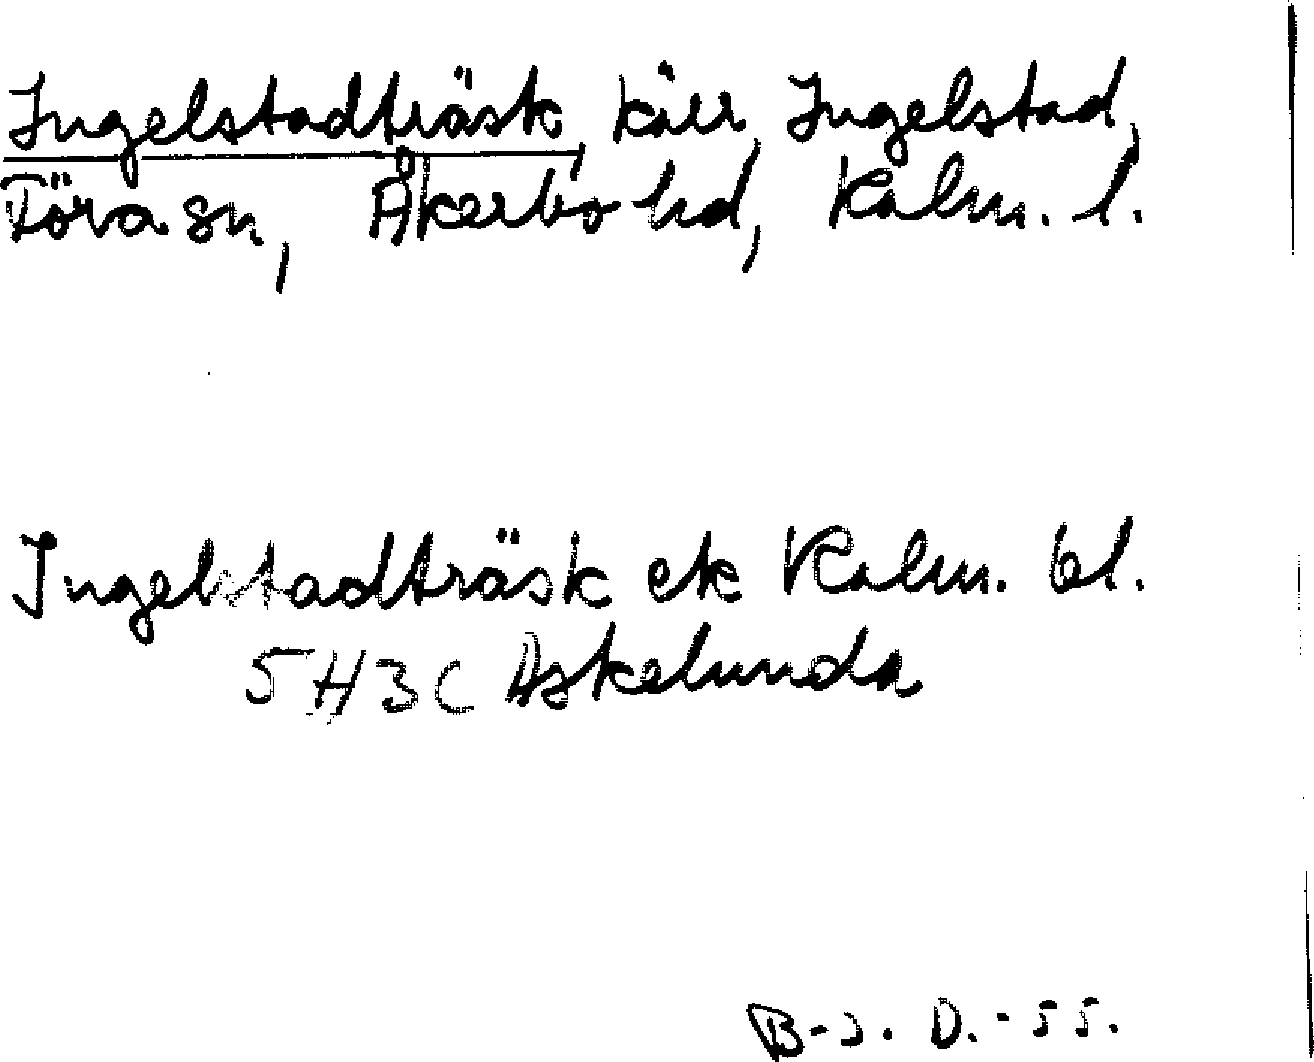 Ingelstadträsk, kärr, Ingelstad,
Föra sn, Åkerbo hd, Kalm. l.
Ingelstadträsk ek Kalm. bl.
5H3C Askelunda
B-J. D. -55.